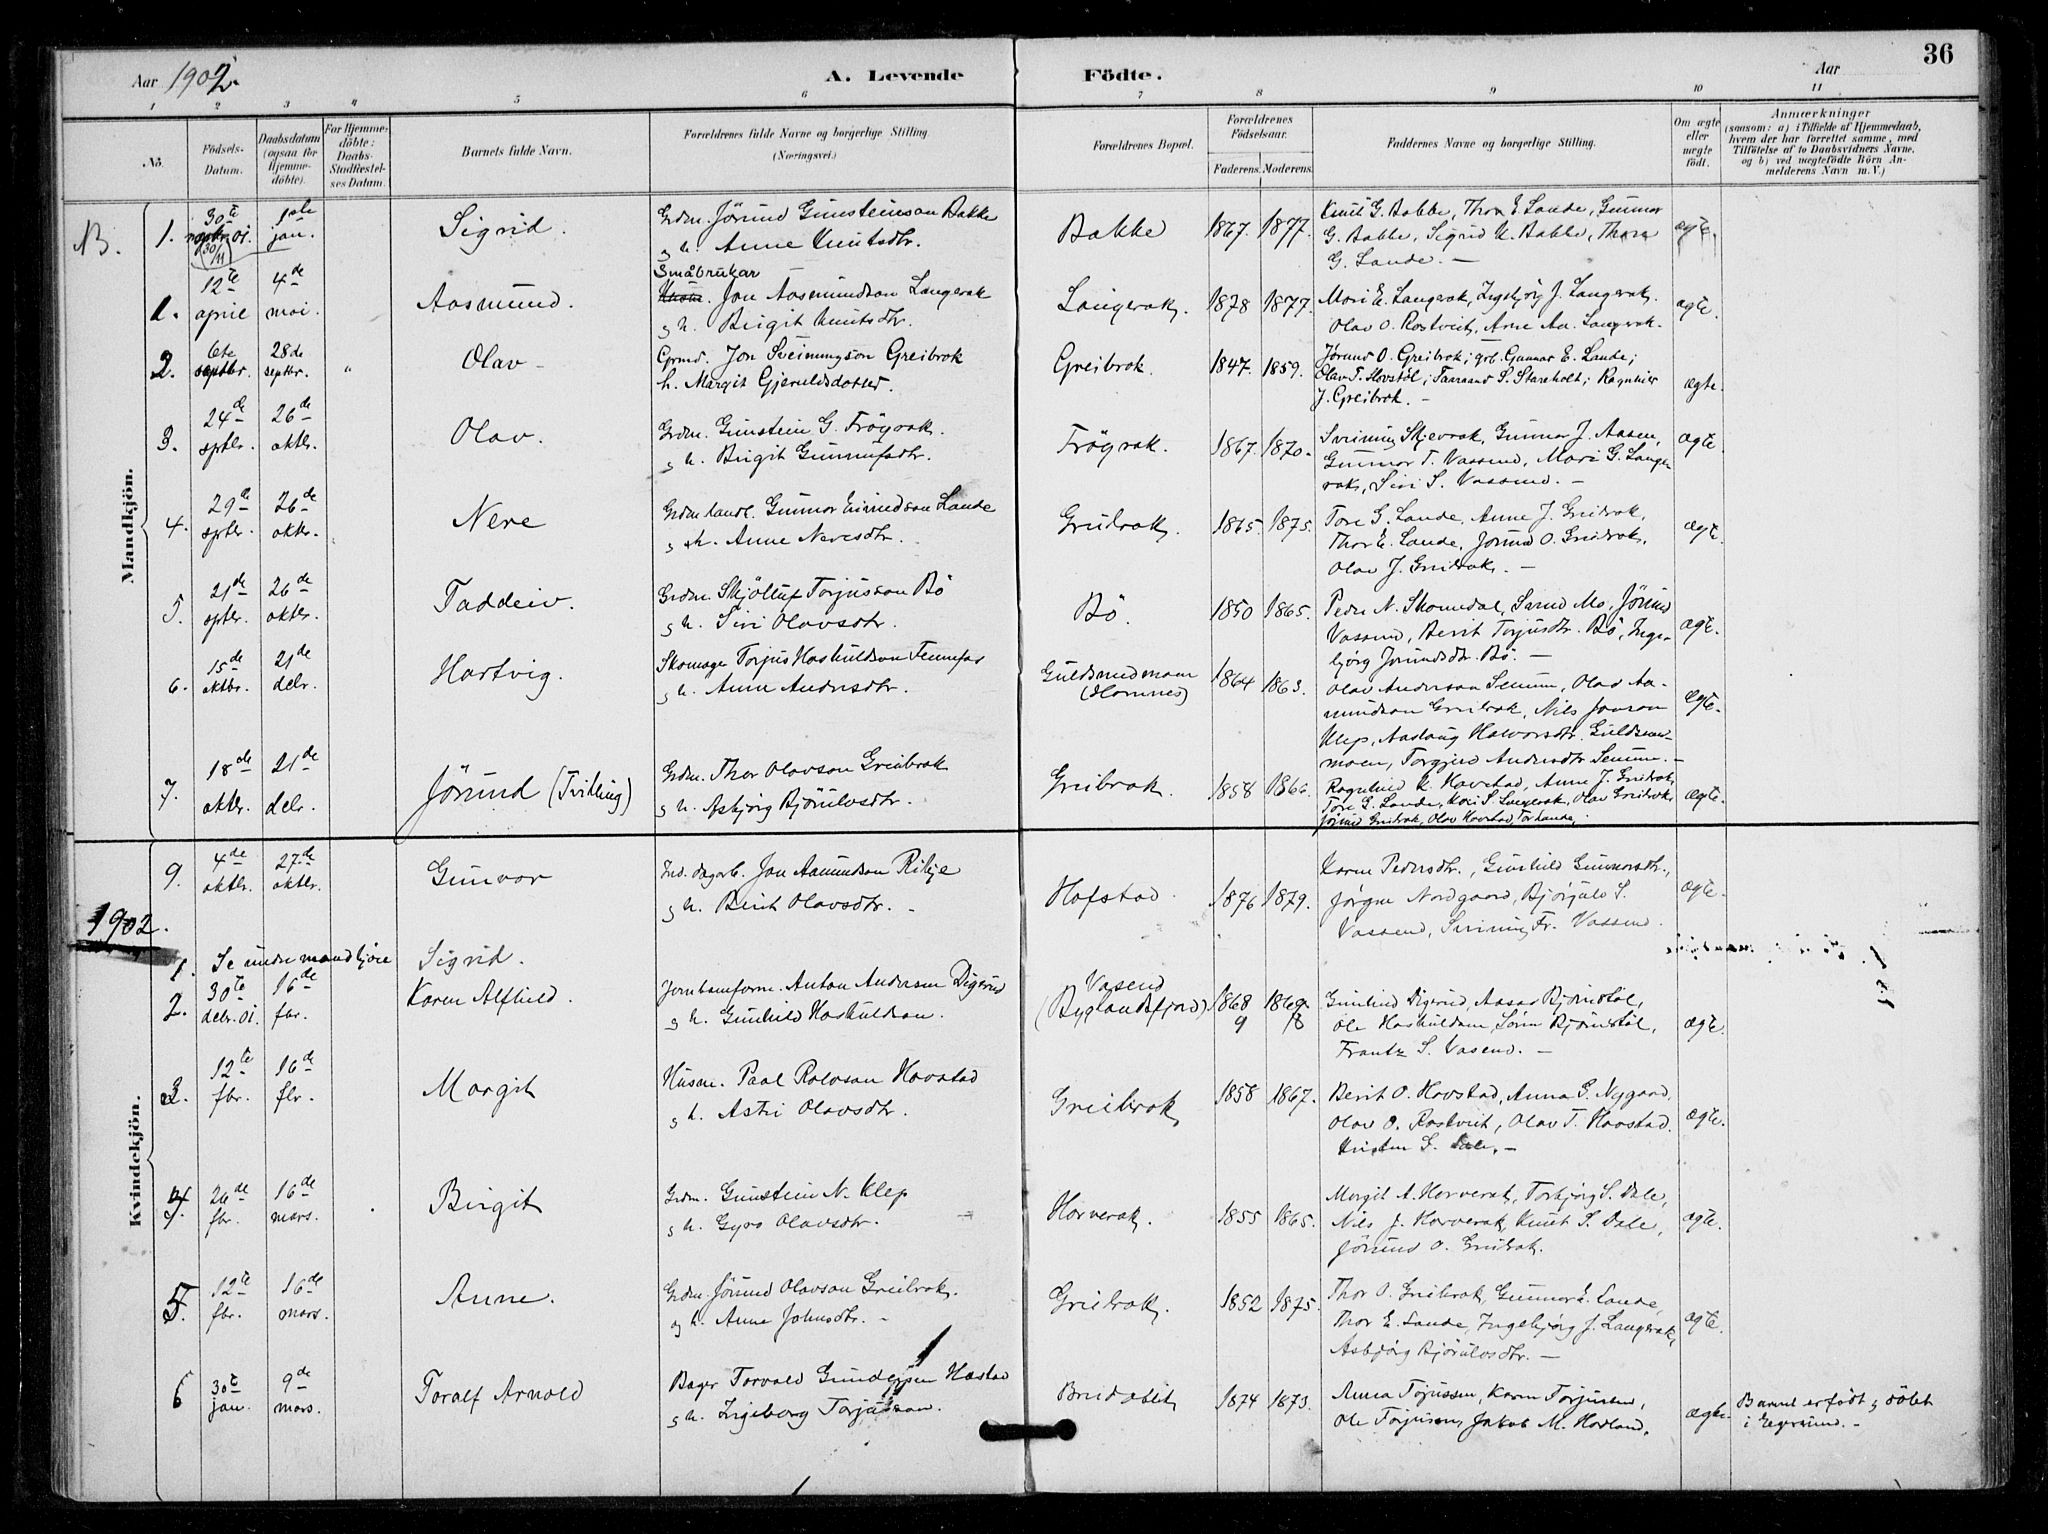 36
Aar 1902.
A. Levende Födte.
Aar
1 2 3 4 5 6 7 8 9 10 11
No.
Födsels-Datum.
Daabsdatum (ogsaa for Hjemmedöbte).
For Hjemmedöbte: Daabs-Stadfæstelses Datum.
Barnets fulde Navn.
Forældrenes fulde Navne og borgerlige Stilling. (Næringsvei.)
Forældrenes Bopæl.
Forældrenes Födselsaar.
Faderens. Moderens.
Faddernes Navne og borgerlige Stilling.
Om ægte eller uægte födt.
Anmærkninger
(saasom: a) i Tilfælde af Hjemmedaab, hvem der har forrettet samme, med Tilföielse af to Daabsvidners Navne, og b) ved uægtefödte Börn Anmelderens Navn m. V.)
Mandkjön.
NB. 1. 30te 01. (30/11) 1ste jan. Sigrid. Grdm. Jörund Gunsteinson Bakke
g h. Anne Knutsdtr. Bakke 1867. 1877. Knut G. Bakke, Thor E. Lande, Gunnar
G. Bakke, Sigrid K. Bakke, Thora
G. Lande. — ægte.
1. 12te april 4de mai. Aasmund. Småbrukar
Jon Aasmundson Langerak
g h. Birgit Knutsdtr. Langerak. 1878 1877. Mari E. Langerak, Ingebjörg J. Langerak.
Olav O. Rostveit, Arne Aa. Langerak. ægte.
2. 6te septbr. 28de septbr. " Olav - Grmd. Jon Sveinungson Greibrok
h. Margit Gjeruldsdotter. Greibrok. 1847. 1859. Jörund O. Greibrok; grb. Gunnar E. Lande;
Olav T. Hovstöl; Taaraand S. Stareholt; Ragnhild
J. Greibrok. — ægte.
3. 24de sptbr. 26de oktbr. Olav. Grdm. Gunstein G. Fröyrak.
g h. Birgit Gunnufsdtr. Fröyrak. 1867. 1870. Sveinung Skjevrak, Gunnar J. Aasen,
Gunnar T. Vassend, Mari G. Lange-
rak, Siri S. Vassend. — ægte.
4. 29de sptbr. 26de oktbr. Nere Grdm. landh. Gunnar Eivindson Lande
g h. Anne Neresdtr. Greibrok. 1865. 1875. Tore G. Lande, Anne J. Greibrok,
Thor E. Lande, Jörund O. Greibrok,
Olav J. Greibrok. — ægte.
5. 21de sptbr. 26de oktbr. Taddeiv. Grdm. Skjöttuf Torjusson Bö
g h. Siri Olavsdtr. Bö. 1850 1865. Peder N. Skomedal, Svend Mo, Jörund
Vassend, Berit Torjusdtr. Bö, Inge-
björg Jorundsdtr. Bö. — ægte.
6. 15de oktbr. 21de debr. Hartvig. Skomager Torjus Haskuldson Tennefos
g h. Anne Andersdtr. Guldsmedmoen
(Hornnes) 1864 1863. Olav Anderson Senum, Olav Aa-
mundson Greibrok, Nils Jonson
Klep, Aaslaug Halvorsdtr. Guldsmed-
moen, Torgjer Andersdtr Senum. — ægte.
7. 18de oktbr. 21de debr. Jörund (Tvilling) Grdm. Thor Olavson Greibrok
g h. Asbjörg Björulvsdtr. Greibrok. 1858 1866. Ragnhild K. Hovstad, Anne J. Greibrok,
Tore G. Lande, Kari S. Langerak, Olav Greibrok,
Jörund Greibrok, Olav Hovstad, Tor Lande. ægte.
Kvindekjön.
9. 4de oktbr. 27de oktbr. Gunvor Ind. dagarb. Jon Aamundson Rikje
g h. Berit Olavsdtr. - Hofstad. 1876 1879. Karen Pedersdtr., Gunhild Gunnarsdtr.,
Jörgen Nordgaard, Björgulv S.
Vassend, Sveinung Fr. Vassend. ægte.
1902.
1. Se under mandkjön Sigrid.
2. 30te debr. 01. 16de fbr. Karen Alfhild. Jernbaneform. Anton Andersen Digerud
g h. Gunhild Haskuldson. Vasend
(Byglandsfjord) 1868 1869.
9 8 Gunhild Digerud, Aasar Björnstöl,
Ole Haskuldson, Sören Björnstöl,
Frantz S. Vasend. — ægte.
3. 12te fbr. 16de fbr. Margit Husm. Paal Rolvson Hovstad
g h. Astri Olavsdtr. Greibrok 1858 1867. Berit O. Hovstad, Anna G. Nygaard,
Olav O. Rostveit, Olav T. Hovstad.
Kristen S. Dale. — ægte.
4. 26de fbr. 16de mars. Birgit Grdm. Gunstein N. Klep
g h. Gyro Olavsdtr. Horverak. 1855 1865. Margit A. Horverak, Torbjörg S. Dale,
Nils J. Horverak, Knut S. Dale,
Jörund O. Greibrok. ægte.
5. 12te fbr. 16de mars. Anne. Grdm. Jörund Olavson Greibrok.
og h. Anne Johnsdtr. - Greibrok. 1852 1875. Thor O. Greibrok, Gunnar E. Lande,
Thor E. Lande, Ingebjörg J. Langerak,
Asbjörg Björulvsdtr. — ægte.
6 30te jan. 9de mars. Toralf Arnold Bager Torvald Gundersen Hastad
g h. Ingeborg Torjusson. Breidablik 1874 1873. Anna Torjussen, Karen Torjussen,
Ole Torjussen, Jakob M. Hovland. ægte. Barnet er födt g döbt
i Egersund. -